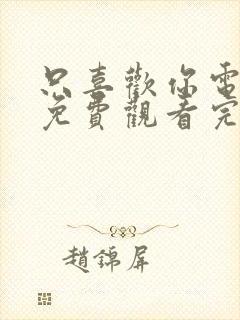 只喜歡你電
免費觀看完
趙錦屏